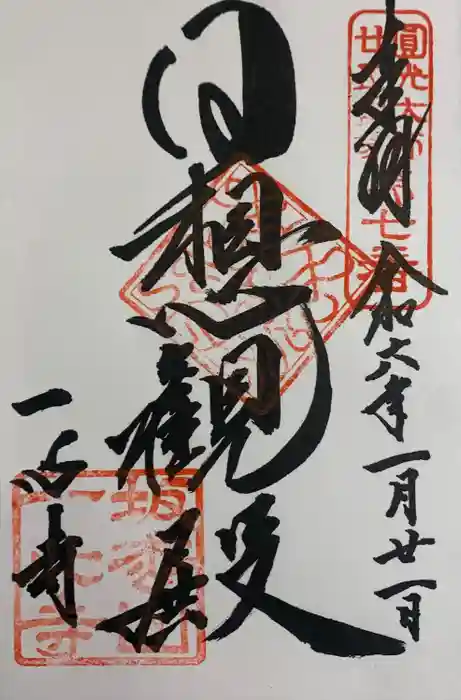 奉拝
令和六年一月廿一日
圓光大師
廿五
七番
日想観殿
一心寺
坂松山
一心寺